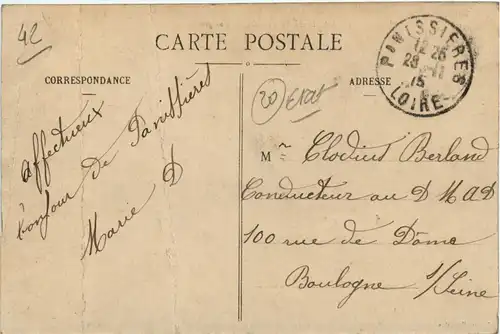 42
CARTE POSTALE
CORRESPONDANCE
ADRESSE
PANISSIERES
12 26
29 - 11
15
LOIRE
20 Etat
Affectueux
bonjour de Panissières
Marie D
Mr Clodius Berland
Conducteur au D M A D
100 rue de Dôme
Boulogne s/Seine